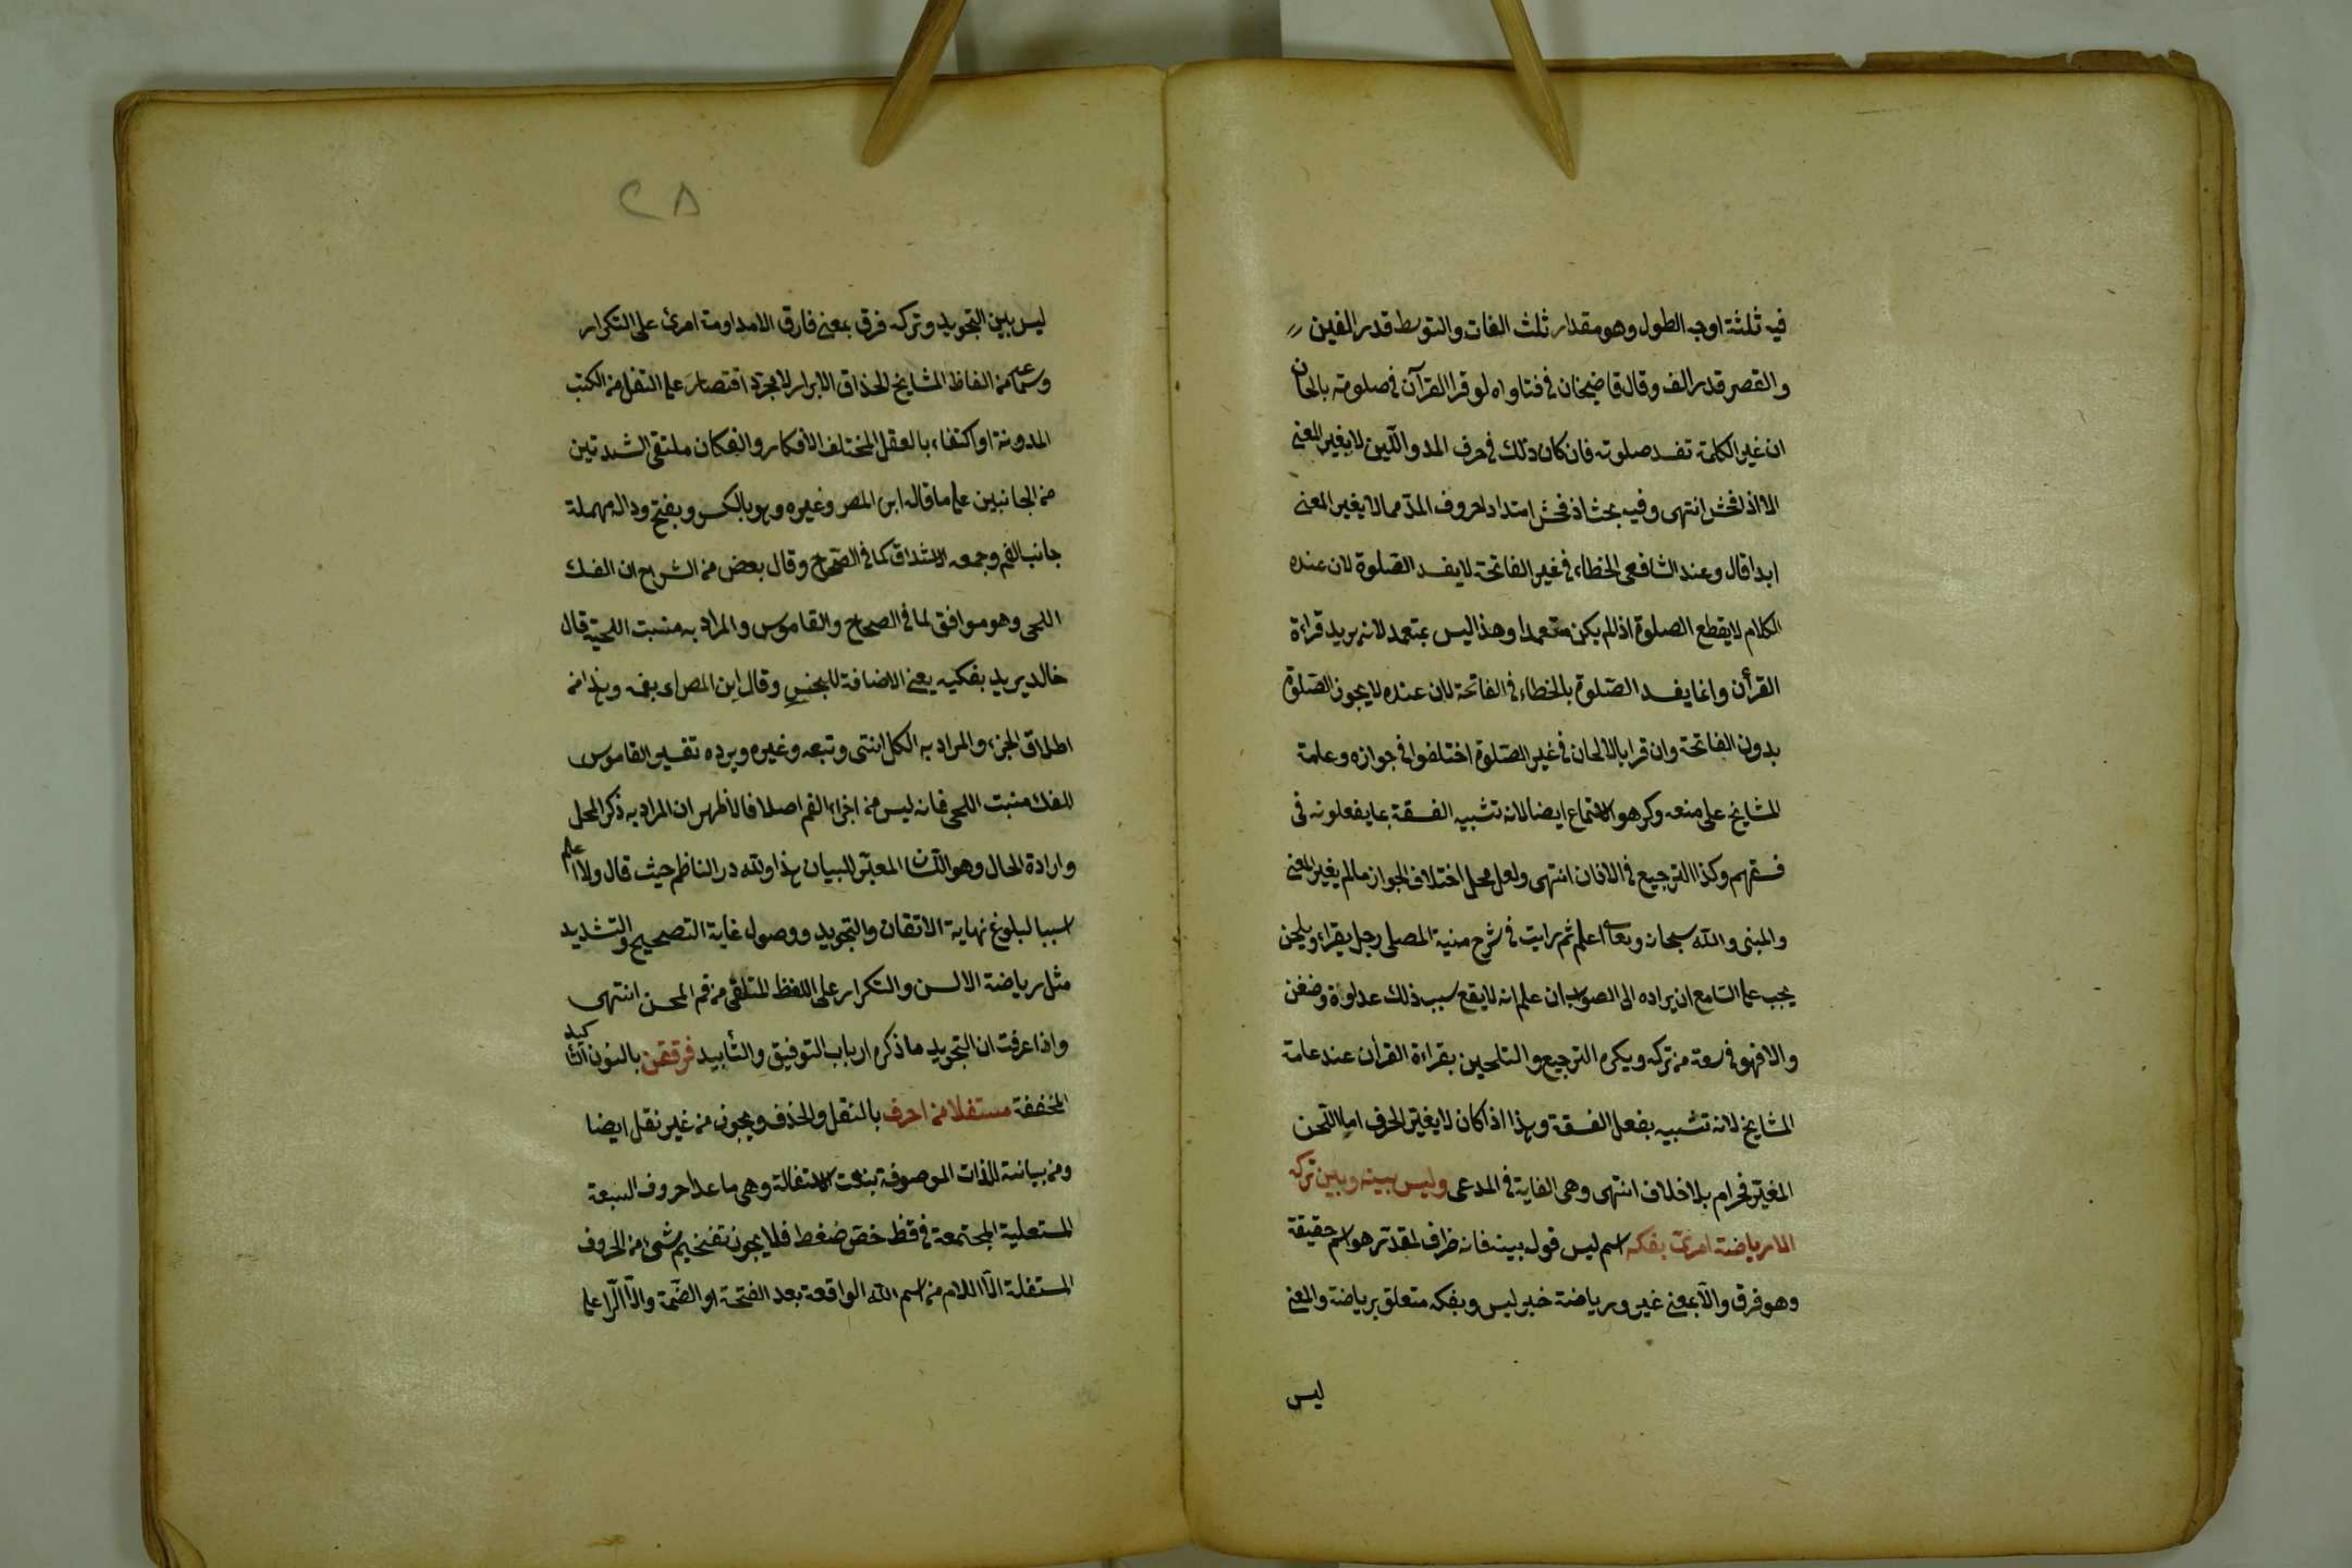 فيه ثلثة اوجه الطول وهو مقدار ثلث الفات والتوسط قدر الفين
والقصر قدر الف وقال قاضيخان في فتاواه لو قرا القرآن في صلوته بالحان
ان غير الكلمة تفسد صلوته فان كان ذلك في حرف المد واللين لا يغير المعنى
الا اذا فحش انتهى وفيه بحث اذ فحش امتداد لحروف المد مما لا يغير المعنى
ابدا قال وعند الشافعى الخطاء في غير الفاتحة لا يفسد الصلوة لان عنده
الكلام لا يقطع الصلوة اذا لم يكن متعمدا وهذا ليس بمتعمد لانه يريد قراءة
القرأن وانما يفسد الصلوة بالخطاء في الفاتحة لان عنده لا يجوز الصلوة
بدون الفاتحة وان قرا بالالحان في غير الصلوة اختلفوا في جوازه وعامة
المشايخ على منعه وكرهوا الاستماع ايضا لانه تشبيه الفسقة بما يفعلونه فى
فسقهم وكذا الترجيع في الاذان انتهى ولعل محل اختلاف الجواز ما لم يغير المعنى
والمبنى والله سبحانه وتعالى اعلم ثم رايت في شرح منية المصلى رجل يقراء ويلحن
يجب على السامع ان يراده الى الصواب ان علم انه لا يقع بسبب ذلك عداوة وضغن
والا فهو في سعة من تركه ويكره الترجيع والتلحين بقراءة القرأن عند عامة
المشايخ لانه تشبيه بفعل الفسقة وهذا اذا كان لا يغير الحرف اما اللحن
المغير فحرام بلا خلاف انتهى وهى الغاية في المدعى وليس بينه وبين تركه
الا رياضة امرئ بفكه اسم ليس قوله بينه فانه ظرف لمقدر هو اسم حقيقة
وهو فرق والا بمعنى غير ورياضة خبر ليس وبفكه متعلق برياضة والمعنى
ليس
٢٨
ليس بين التجويد وتركه فرق بمعنى فارق الا مداومة امرئ على التكرار
وسماعه من الفاظ المشايخ الحذاق الابرار لا مجرد اقتصار على النقل من الكتب
المدونة او اكتفاء بالعقل المختلف الافكار والفكان ملتقى الشدقين
من الجانبين على ما قاله ابن المصر وغيره وهو بالكسر وبفتح ودال مهملة
جانب الفم وجمعه الاشداق كما في الصحاح وقال بعض من الشراح ان الفك
اللحى وهو موافق لما في الصحاح والقاموس والمراد به منبت اللحية قال
خالد يريد بفكيه يعنى الاضافة للجنس وقال ابن المصر اى بفمه وهذا من
اطلاق الجزء والمراد به الكل انتهى وتبعه وغيره ويرده تفسير القاموس
الفك منبت اللحى فانه ليس من اجزاء الفم اصلا فالاظهر ان المراد به ذكر المحل
وارادة الحال وهو اللسان المعبر للبيان هذا ولله در الناظم حيث قال ولا اعلم
سببا لبلوغ نهاية الاتقان والتجويد ووصول غاية التصحيح والتشديد
مثل رياضة الالسن والتكرار على اللفظ المتلقى من فم المحسن انتهى
واذا عرفت ان التجويد ما ذكره ارباب التوفيق والتأييد فرققن بالنون التاكيد
المخففة مستفلا من احرف بالنقل والحذف ويجوز من غير نقل ايضا
ومن بيانية للذات الموصوفة بنعت الاستفالة وهى ما عدا حروف السبعة
المستعلية المجتمعة في قظ خص ضغط فلا يجوز تفخيم شئ من الحروف
المستفلة الا اللام من اسم الله الواقعة بعد الفتحة او الضمة والا الرا على